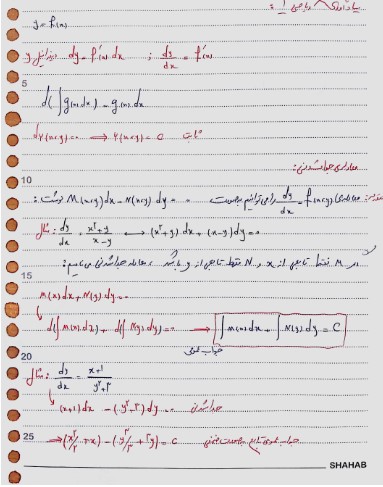 یادآوری ریاضی 1:
y = f(x)
دیفرانسیل y dy = f'(x) dx ; dy/dx = f'(x)
5
d(∫g(x)dx) = g(x)dx
dφ(x,y)=0 ⟹ φ(x,y) = C ثابت
معادلات جداشدنی:
10
معادله‌ی dy/dx = f(x,y) را می‌توانیم بصورت M(x,y)dx - N(x,y)dy = 0 نوشت:
مثال: dy/dx = x²+y / x-y ⟷ (x²+y) dx + (x-y) dy = 0
اگر M فقط تابعی از x و N فقط تابعی از y باشد، معادله جداشدنی می‌نامیم:
15
M(x)dx + N(y)dy = 0
d(∫M(x)dx) + d(∫N(y)dy) = 0 ⟶ ∫M(x)dx + ∫N(y)dy = C
جواب عمومی
20
مثال: dy/dx = x+1 / y²+2
(x+1)dx - (y²+2)dy = 0 جداشدنی
25 ⟹ (x²/2 + x) - (y³/3 + 2y) = C جواب عمومی تابع بصورت ضمنی
SHAHAB